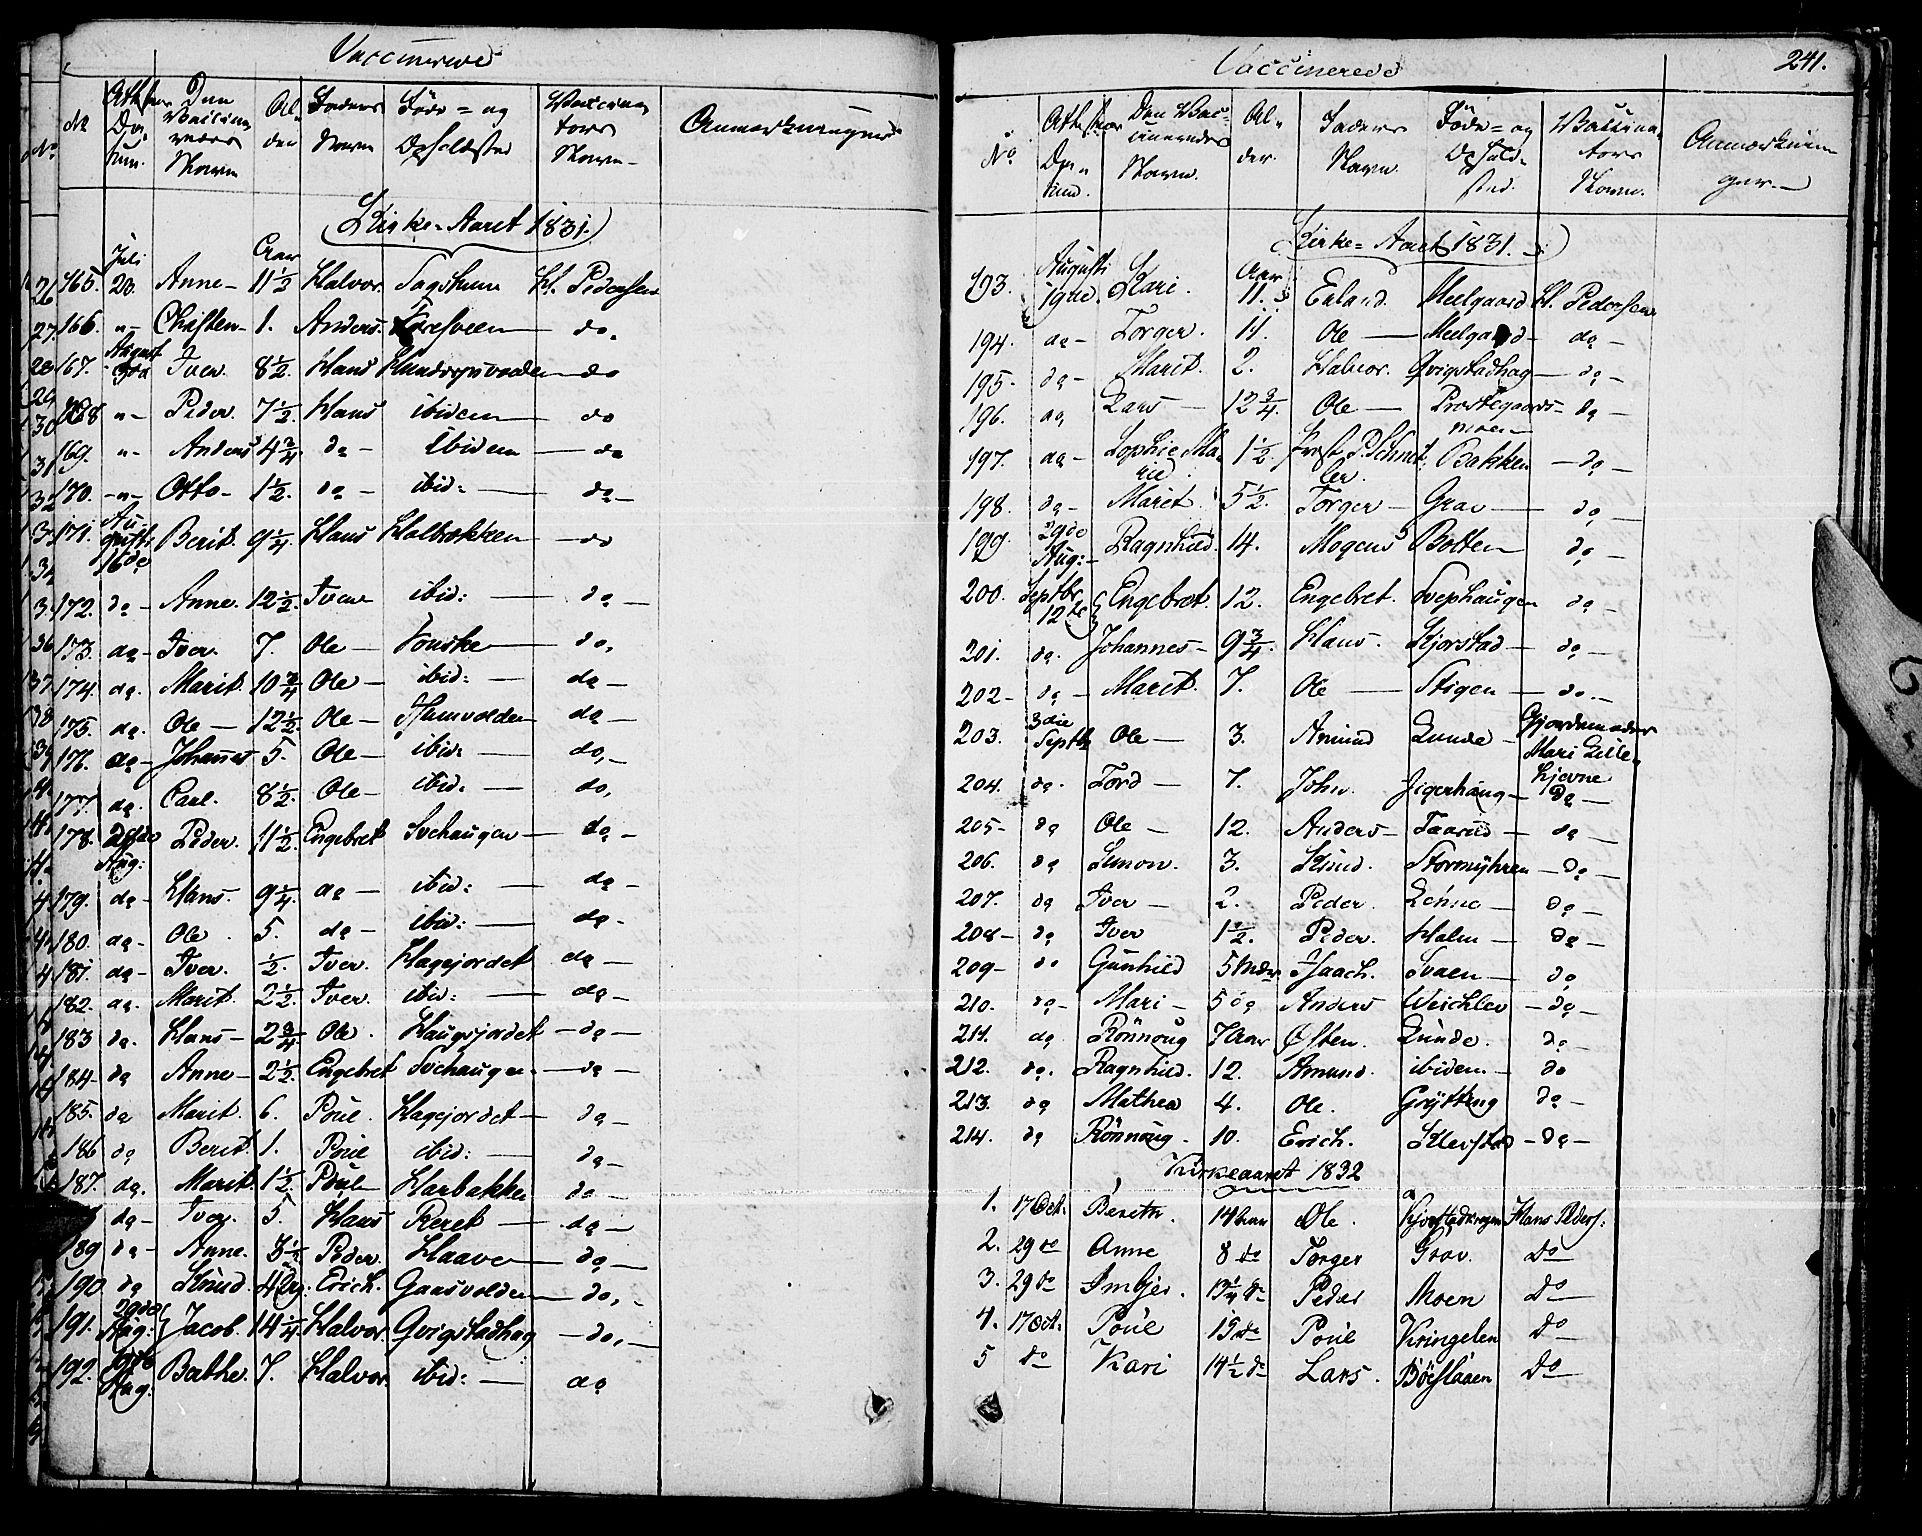 Vaccinerede
No Attestens Datum. Den Vaccineredes Navn Alder Faders Navn Føde= og Opholdssted Vaccinators Navn Anmærkninger
Kirke-Aaret 1831.
165. Juli 20. Anne 11½ Aar Halvor H. Pedersen
166. "- Christen 1. Anders do.
167. August Iver 8½. Hans do
168 "- Peder 7½. Hans ibidem do
169. "- Anders 4¾ do - ibidem do
170. -"- Otto 1½. do - ibid: do -
171. Augusti 16de Berit 9¼. Hans Holbrækken do
172. do - Anne. 12½. Iver ibid: do
173. do - Iver 7. Ole - Fouske do,
174. do. Marit 10¾ Ole - ibid: do -
175. do. Ole - 12½. Ole - do -
176. do - Johannes 5. Ole - ibid: do,-
177. do. Carl. 8½. Ole - ibid: do,
178. Aug: Peder. 11½. Engebret Svehaugen do -
179. do - Hans. 9¼. do - ibid: do -
180. do - Ole 5. do - ibid: do -
181. do - Iver. ½. Iver. Hagejordet do -
182. do. Marit 2½. Iver. ibid: do -
183 do. Hans - 2¾ Ole . Haugsjordet - do -
184 - do Anne - 2½. Engebret Svehaugen - do -
185. do Marit 6. Poul. Hagejordet - do -
186 do Berit 1. Poul ibid: do -
187. do. Marit 1½. Poul Harbakken do -
do - Iver. 5. Hans Reret do -
189 do - Anne. 3½ Peder. Haave do -
190 do Knud. Erich. Gaasvolden do,-
191. 29de Aug: Jacob. 14¼ Halvor. Qvigstadhag - do,-
192. Aug: Bathe. 7. Halvor. ibid: do
Vaccinerede 241.
No Attestens Datum. Den Vaccineredes Navn. Alder. Faders Navn. Føde= og Opholdssted. Vaccinators Navn. Anmærkninger.
Kirke= Aaret 1831.
193. Augusti Kari. 11. Aar Erland. Meelgaard H. Pedersen
194. do - Torger. 11. Ole Meelgaard - do -
195. do - Marit. 2. Halvor. Qvigstadhag - do -
196. do Lars 12¾ Ole Prestegaardsmoen - do -
197. do - Sophie Marie 1½. Prost P. Schnitler. Bakken - do -
198. do - Marit 5½. Torger Grav do,
199. 29de Aug: Ragnhild. 14. Mogens Botten do,-
200. Septbr. 12te Engebret. 12. Engebret. Svephaugen do -
201. do. Johannes 9¾. Hans. Kjorstad do -
202 - do - Marit. 7. Ole Stigen do. -
203. Septbr Ole 3. Amund Lunde Gjordemoder Mari Lillehjevne
204. do. Tord 7. John. do -
205 - do Ole 12. Anders Taarud do -
206. do Simon. 3. Knud. Stormyhren - do -
207. do Iver 2. Peder. Lehne do -
208 - do Iver 1½. Peder. Holm do -
209 - do Gunhild 5 Mdr Isaach. Svaen do,
210. do - Mari 5 do Anders - do -
211. do Rönnoug 7 Aar Østen. Lunde. do -
212. do. Ragnhild. 12. Amund. ibidem do
213. do Mathea 4. Ole. Grytting do -
214. do Rönnoug. 10. Erich. - do -
Kirkeaaret 1832
1. 17 Oct. Bereth. 14 Aar Ole. Hans Peders:
2. 29 do Anne 8 do Torger Grav. Do
3. 29 do Imbjer. 13¼ do Peder Moen Do
4. 17 Oct. Poul 15 do Poul Kringelen Do
5 do Kari 14½ do Lars. Do